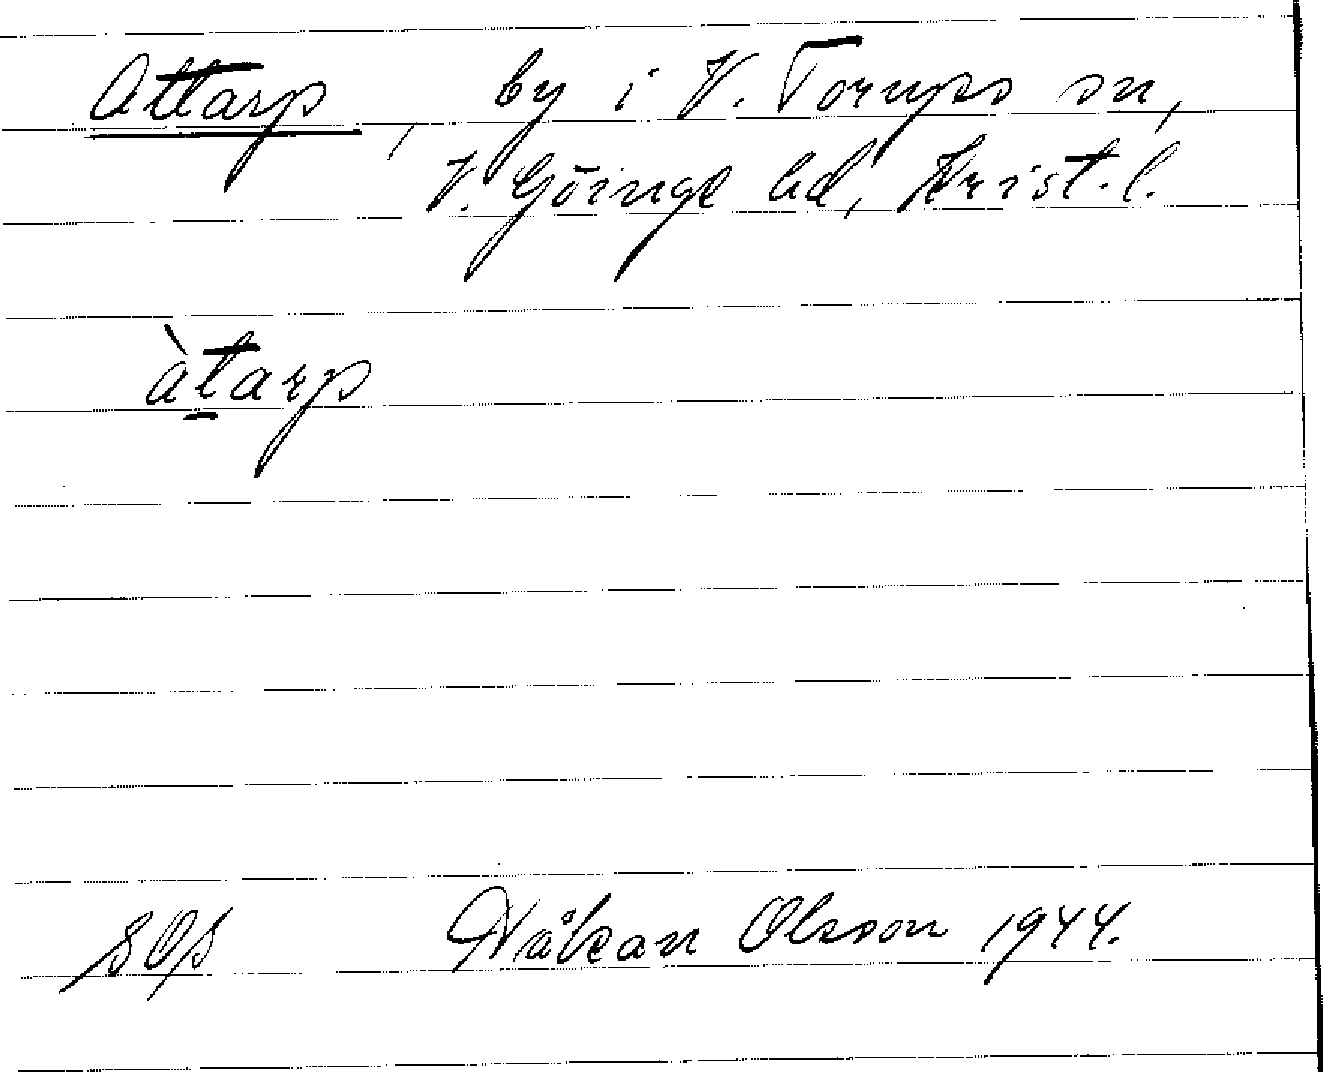 Attarp, by i V. Torups sn,
V. Göinge hd, Krist. l.
àtarp
Håkan Olsson 1944.